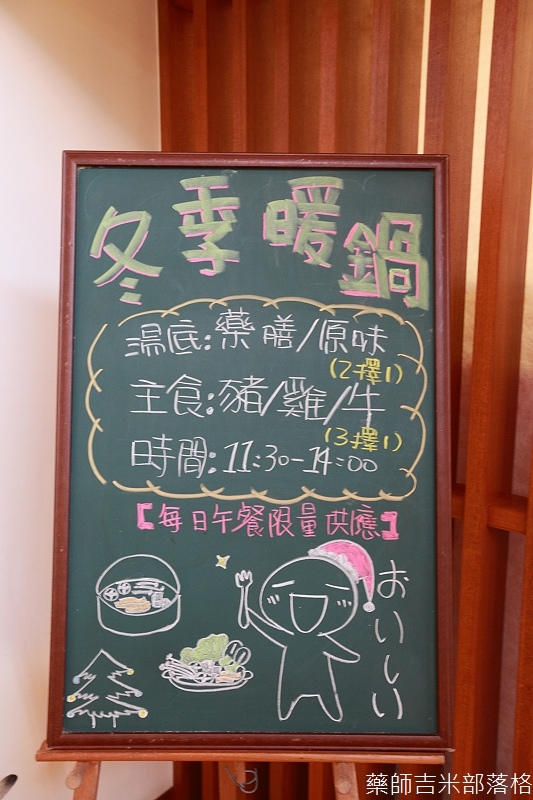 冬季暖鍋
湯底:藥膳/原味
(2擇1)
主食:豬/雞/牛
(3擇1)
時間:11:30-14:00
【每日午餐限量供應】
おいしい
藥師吉米部落格